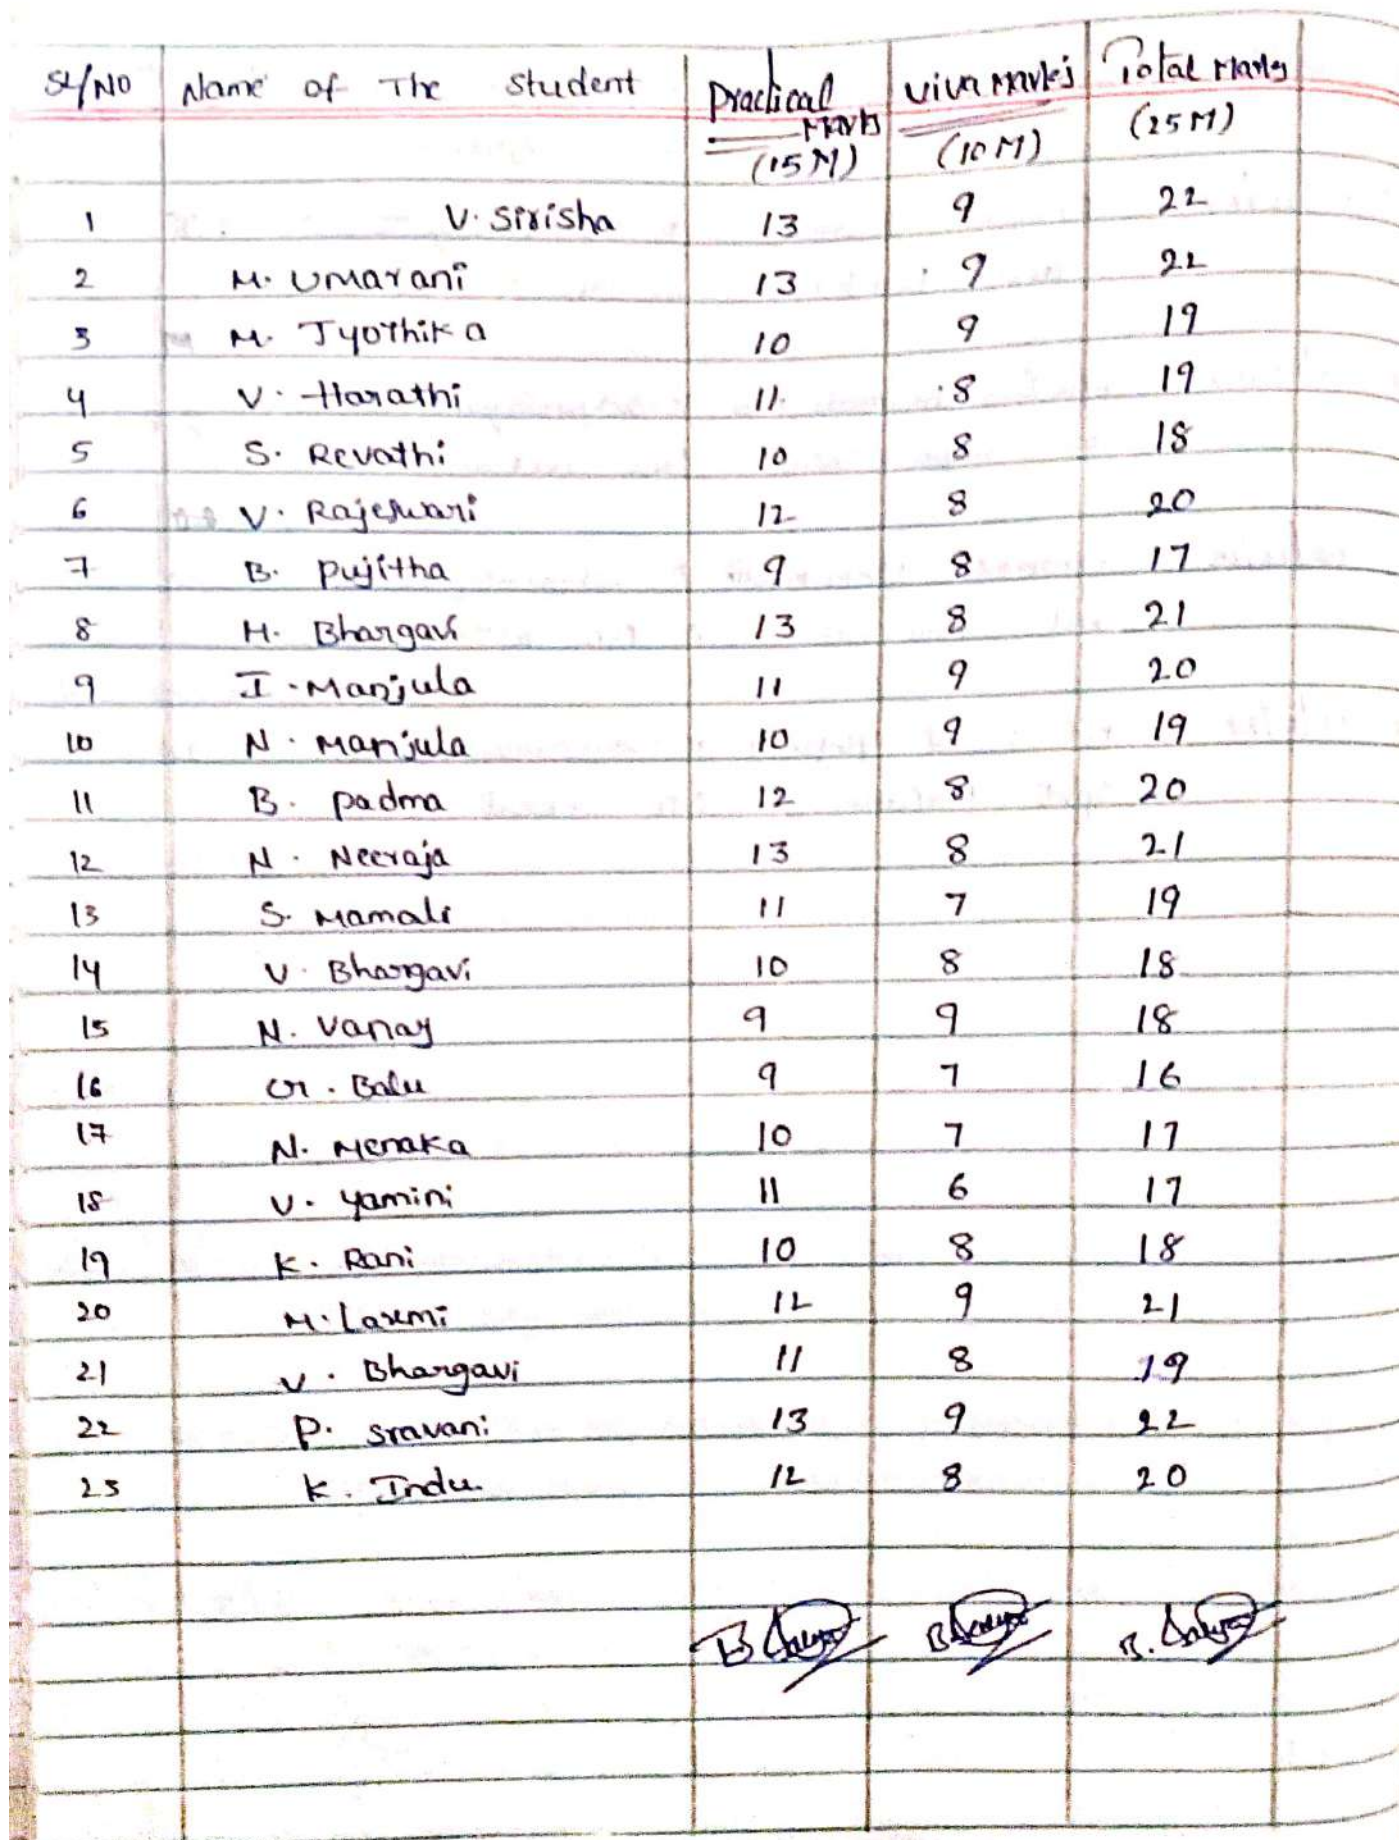 Sl/No Name of The Student Practical Marks (15 M) Viva Marks (10 M) Total Marks (25 M)
1 V. Sirisha 13 9 22
2 M. Umarani 13 9 22
3 M. Jyothika 10 9 19
4 V. Harathi 11 8 19
5 S. Revathi 10 8 18
6 V. Rajeswari 12 8 20
7 B. Pujitha 9 8 17
8 H. Bhargavi 13 8 21
9 I. Manjula 11 9 20
10 N. Manjula 10 9 19
11 B. Padma 12 8 20
12 N. Neeraja 13 8 21
13 S. Mamali 11 7 19
14 V. Bhargavi 10 8 18
15 N. 9 9 18
16 G. Balu 9 7 16
17 N. Menaka 10 7 17
18 V. Yamini 11 6 17
19 K. Rani 10 8 18
20 M. Laxmi 12 9 21
21 V. Bhargavi 11 8 19
22 P. Sravani 13 9 22
23 K. Indu 12 8 20